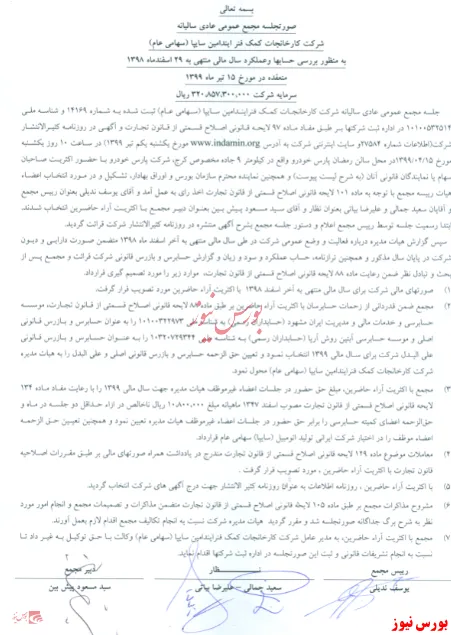 بسمه تعالی
صورتجلسه مجمع عمومی عادی سالیانه
شرکت کارخانجات کمک فنر ایندامین سایپا (سهامی عام)
به منظور بررسی حسابها وعملکرد سال مالی منتهی به ۲۹ اسفندماه ۱۳۹۸
منعقده در مورخ ۱۵ تیر ماه ۱۳۹۹
سرمایه شرکت ۳۲۰،۸۵۷،۳۰۰،۰۰۰ ریال
جلسه مجمع عمومی عادی سالیانه شرکت کارخانجات کمک فنرایندامین سایپا (سهامی عام) ثبت شده به شماره ۱۴۱۶۹ و شناسه ملی
۱۰۱۰۰۵۳۲۵۱۴ در اداره ثبت شرکتها بر طبق مفاد ماده ۹۷ لایحه قانونی اصلاح قسمتی از قانون تجارت و آگهی در روزنامه کثیرالانتشار
شرکت(اطلاعات شماره ۲۷۵۸۴ وسایت اینترنتی شرکت به آدرس www.indamin.org مورخ یکشنبه یکم تیر ۱۳۹۹) در ساعت ۱۰ روز یکشنبه
مورخ ۱۳۹۹/۰۴/۱۵ در محل سالن رمضان پارس خودرو واقع در کیلومتر ۹ جاده مخصوص کرج، شرکت پارس خودرو با حضور اکثریت صاحبان
سهام یا نمایندگان قانونی آنان (به شرح لیست پیوست) و همچنین نماینده محترم سازمان بورس و اوراق بهادار، تشکیل و در مورد انتخاب اعضاء
هیات رییسه مجمع با توجه به ماده ۱۰۱ لایحه قانونی اصلاح قسمتی از قانون تجارت اخذ رای به عمل آمد و آقای یوسف ندیلی بعنوان رییس مجمع
و آقایان سعید جمالی و علیرضا بیاتی بعنوان نظار و آقای سید مسعود پیش بین بعنوان دبیر مجمع با اکثریت آراء حاضرین انتخاب شدند.
ابتدا رسمیت جلسه توسط رییس مجمع اعلام و دستور جلسه مجمع بشرح آگهی منتشره در روزنامه کثیرالانتشار شرکت قرائت گردید.
سپس گزارش هیات مدیره درباره فعالیت و وضع عمومی شرکت در طی سال مالی منتهی به آخر اسفند ماه ۱۳۹۸ متضمن صورت دارایی و دیون
شرکت در پایان سال مذکور و همچنین ترازنامه، حساب عملکرد و سود و زیان و گزارش حسابرس و بازرس قانونی شرکت قرائت و مجمع پس از
بحث و تبادل نظر ضمن رعایت ماده ۸۸ لایحه قانونی اصلاح قسمتی از قانون تجارت، موارد زیر را مورد تصمیم گیری قرارداد.
۱) صورتهای مالی شرکت برای سال مالی منتهی به آخر اسفند ماه ۱۳۹۸ با اکثریت آراء حاضرین مورد تصویب قرار گرفت.
۲) مجمع ضمن قدردانی از زحمات حسابرسان با اکثریت آراء حاضرین بر طبق ماده ۸۸ لایحه قانونی اصلاح قسمتی از قانون تجارت، موسسه
حسابرسی و خدمات مالی و مدیریت ایران مشهود (حسابداران رسمی) به شناسه ملی ۱۰۱۰۰۳۲۲۹۷۳ را به عنوان حسابرس و بازرس قانونی
اصلی و موسسه حسابرسی آبتین روش آریا (حسابداران رسمی) به شناسه ملی ۱۰۳۲۰۷۲۹۳۴۴ را به عنوان حسابرس و بازرس قانونی
علی البدل شرکت برای سال مالی ۱۳۹۹ انتخاب نمود و تعیین حق الزحمه حسابرس و بازرس قانونی اصلی و علی البدل را به هیات مدیره
شرکت کارخانجات کمک فنرایندامین سایپا (سهامی عام) محول نمود.
۳) مجمع با اکثریت آراء حاضرین، مبلغ حق حضور در جلسات اعضاء غیرموظف هیات مدیره جهت سال مالی ۱۳۹۹ را با رعایت مفاد ماده ۱۳۴
لایحه قانونی اصلاح قسمتی از قانون تجارت مصوب اسفند ۱۳۴۷ ماهیانه مبلغ ۱۰،۸۰۰،۰۰۰ ریال ناخالص در ازاء حداقل دو جلسه در ماه و
حق‌الزحمه اعضای کمیته حسابرسی را برابر حق حضور در جلسات اعضاء غیرموظف هیات مدیره تعیین نمود و همچنین تعیین حق الزحمه
اعضاء موظف را در اختیار شرکت ایرانی تولید اتومبیل (سایپا) سهامی عام قرارداد.
۴) معاملات موضوع ماده ۱۲۹ لایحه قانونی اصلاح قسمتی از قانون تجارت مندرج در یادداشت همراه صورتهای مالی بر طبق مقررات اصلاحیه
قانون تجارت با اکثریت آراء حاضرین ، مورد تصویب قرار گرفت .
۵) با اکثریت آراء حاضرین ، روزنامه اطلاعات به عنوان روزنامه کثیر الانتشار جهت درج آگهی های شرکت انتخاب گردید.
۶) مشروح مذاکرات مجمع بر طبق ماده ۱۰۵ لایحه قانونی اصلاح قسمتی از قانون تجارت متضمن مذاکرات و تصمیمات مجمع و انجام امور مورد
نظر به شرح برگ جداگانه صورتجلسه شد و مقرر گردید هیات مدیره شرکت نسبت به انجام تکالیف مجمع اقدام لازم بعمل آورند.
۷) مجمع با اکثریت آراء حاضرین، به مدیر عامل شرکت کارخانجات کمک فنرایندامین سایپا (سهامی عام) وکالت با حق توکیل به غیر داد تا
نسبت به انجام تشریفات قانونی و ثبت این صورتجلسه در اداره ثبت شرکتها اقدام نماید.
رییس مجمع نظار دبیر مجمع
یوسف ندیلی سعید جمالی علیرضا بیاتی سید مسعود پیش بین
بورس نیوز
بورس نیوز